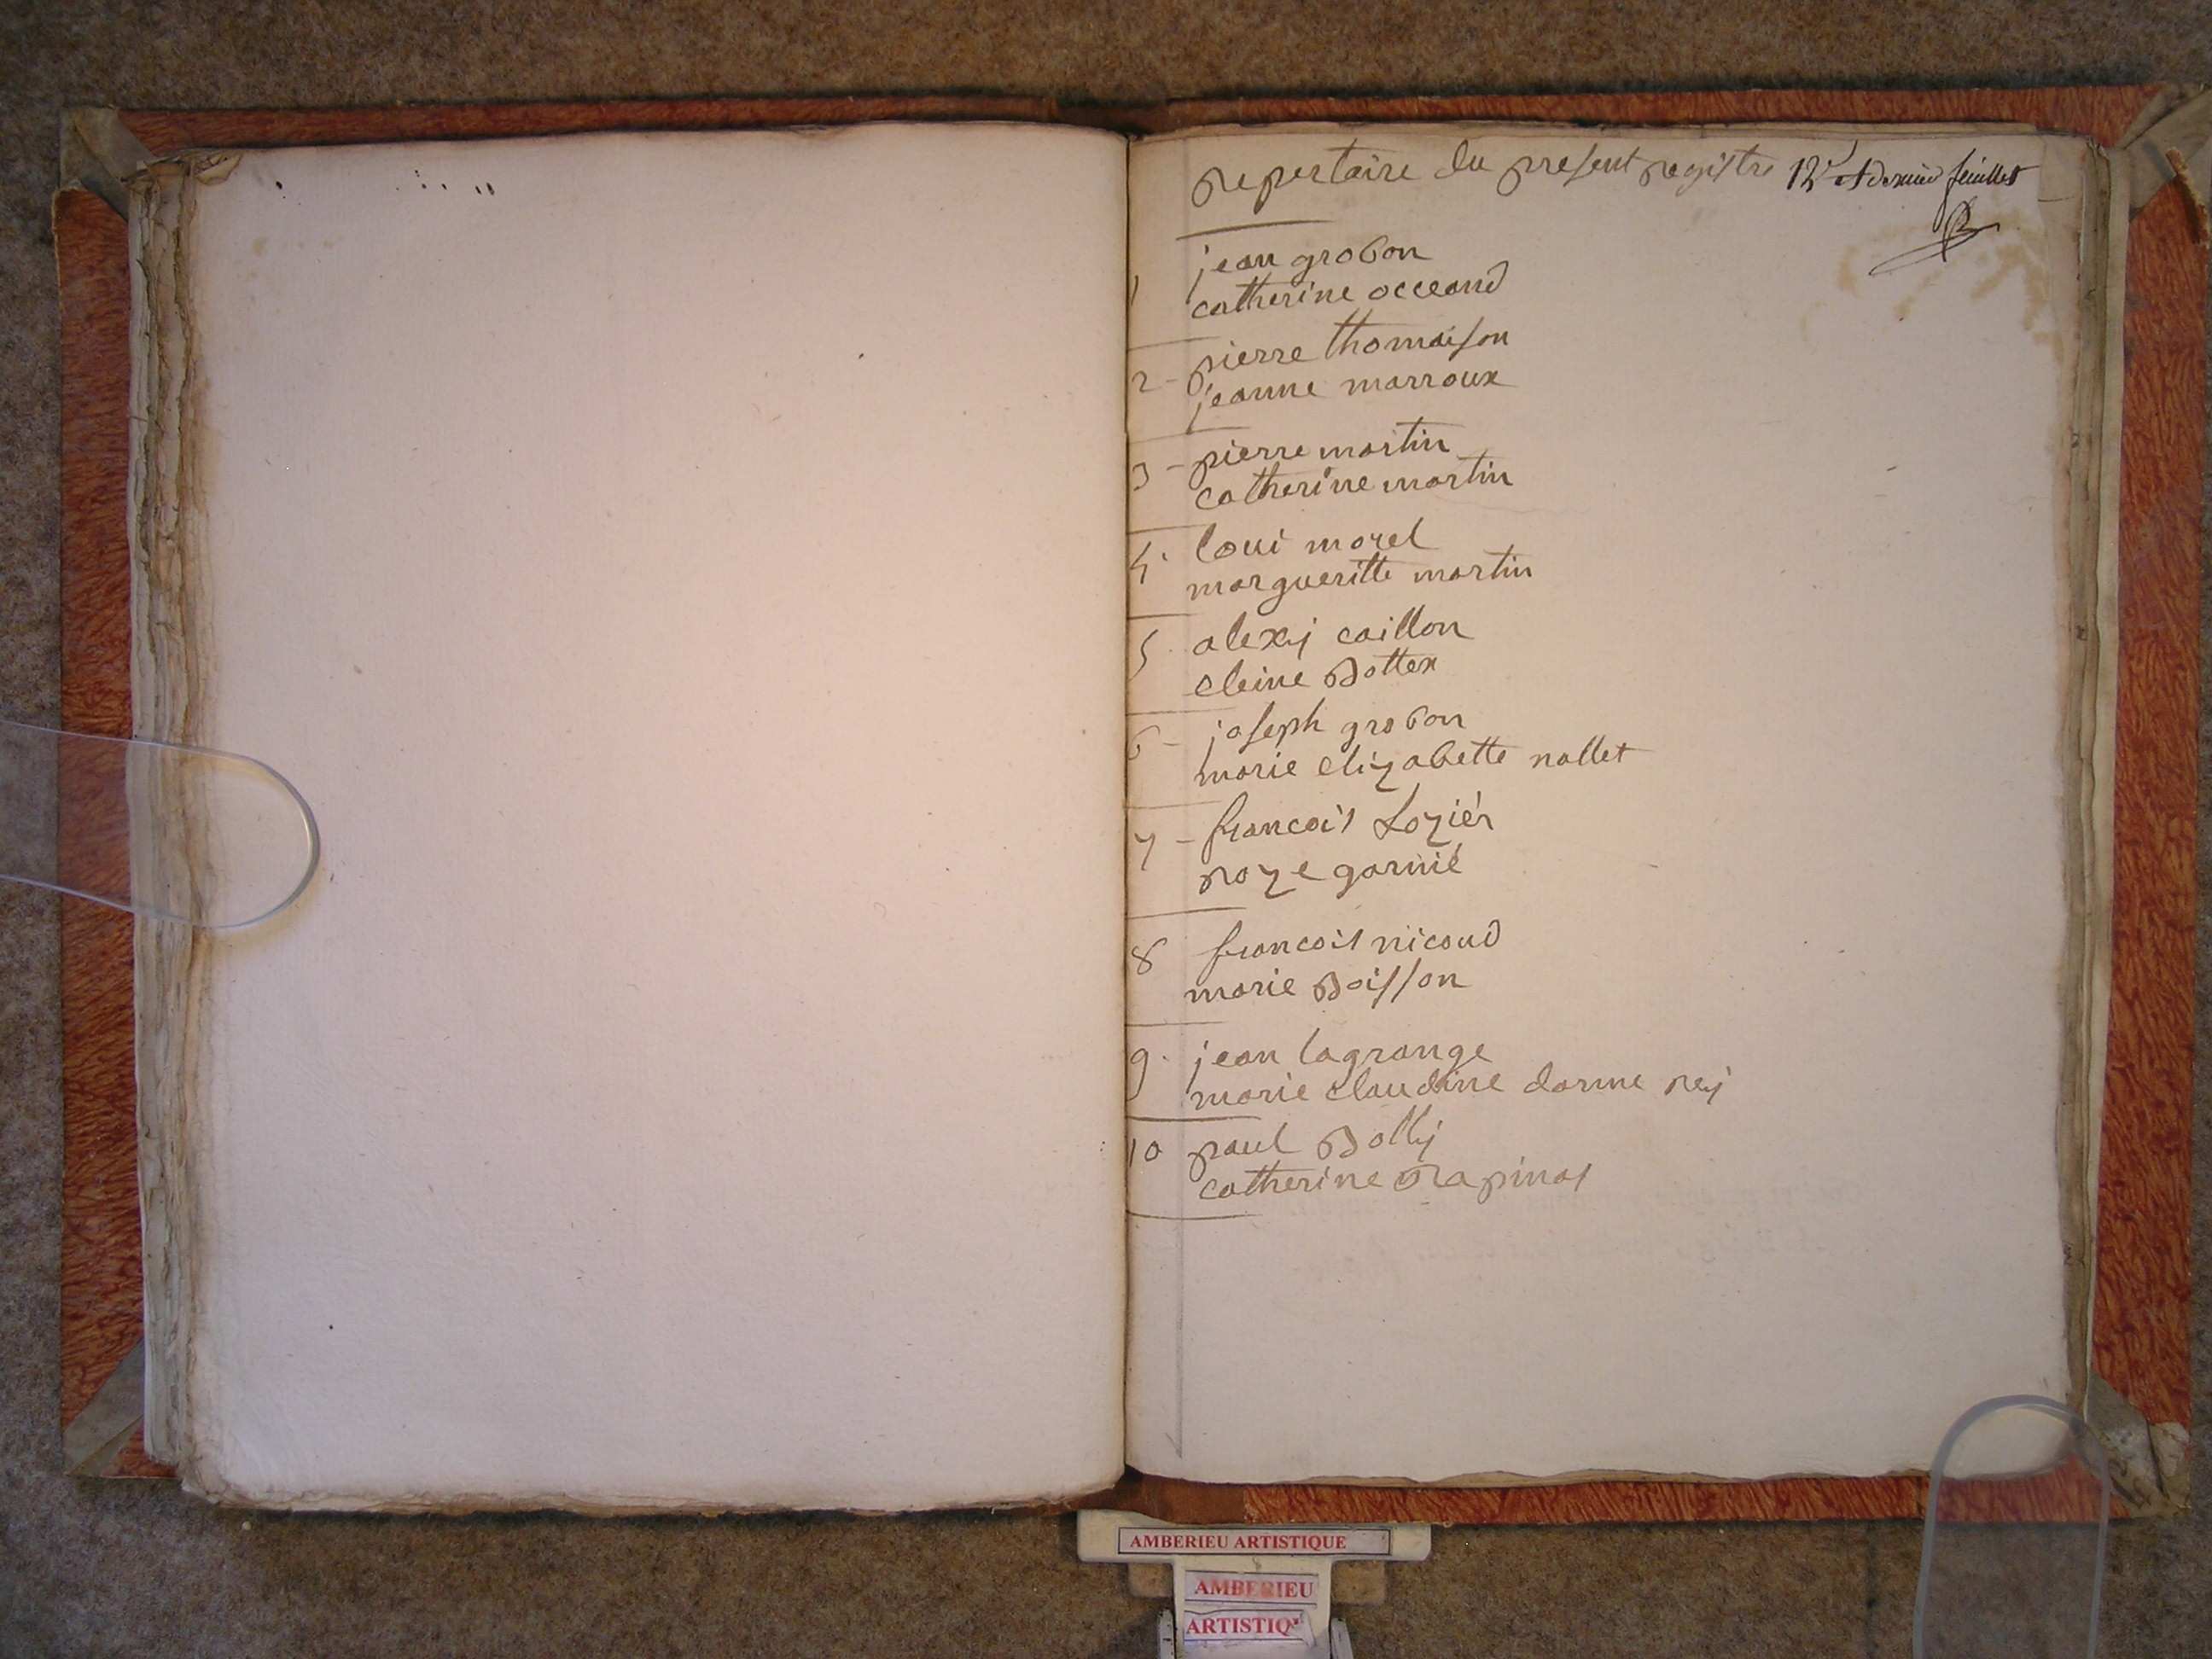 repertaire du present registre 12e et dernier feuillet
1 jean grobon
catherine occeand
2 - pierre thomaison
jeanne marroux
3 - pierre martin
catherine martin
4. loui morel
margueritte martin
5. alexj caillon
cleine Bottex
6 - joseph grobon
marie elizabette nallet
7 - francois Lozier
roze garnié
8 francois nicoud
marie Boisson
9. jean lagrange
marie claudine danne rey
10 paul Bolly
catherine Rapinas
AMBERIEU ARTISTIQUE
AMBERIEU
ARTISTIQ